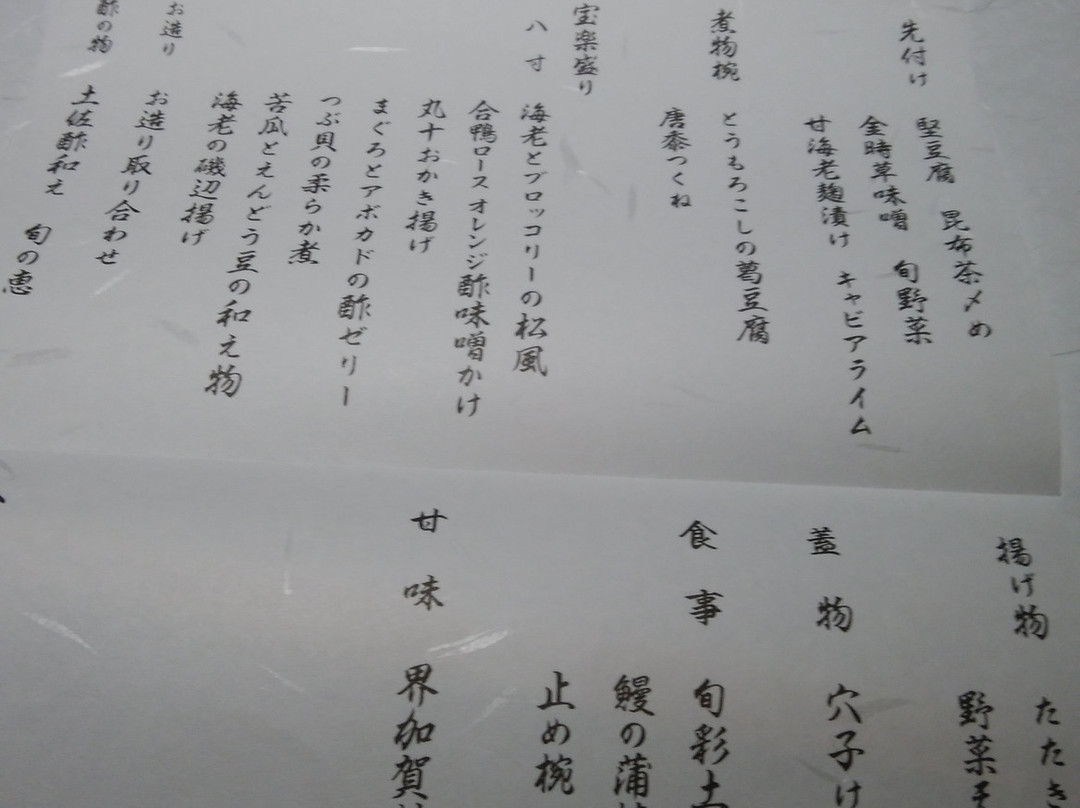 先付け
堅豆腐 昆布茶〆め
金時草味噌 旬野菜
甘海老麹漬け キャビアライム
煮物椀
とうもろこしの葛豆腐
唐黍つくね
宝楽盛り
八寸
海老とブロッコリーの松風
合鴨ロースオレンジ酢味噌かけ
丸十おかき揚げ
まぐろとアボカドの酢ゼリー
つぶ貝の柔らか煮
苦瓜とえんどう豆の和え物
海老の磯辺揚げ
お造り
お造り取り合わせ
酢の物
土佐酢和え 旬の恵
揚げ物
たたき
野菜
蓋物
穴子け
食事
旬彩土
鰻の蒲
止め椀
甘味
界加賀